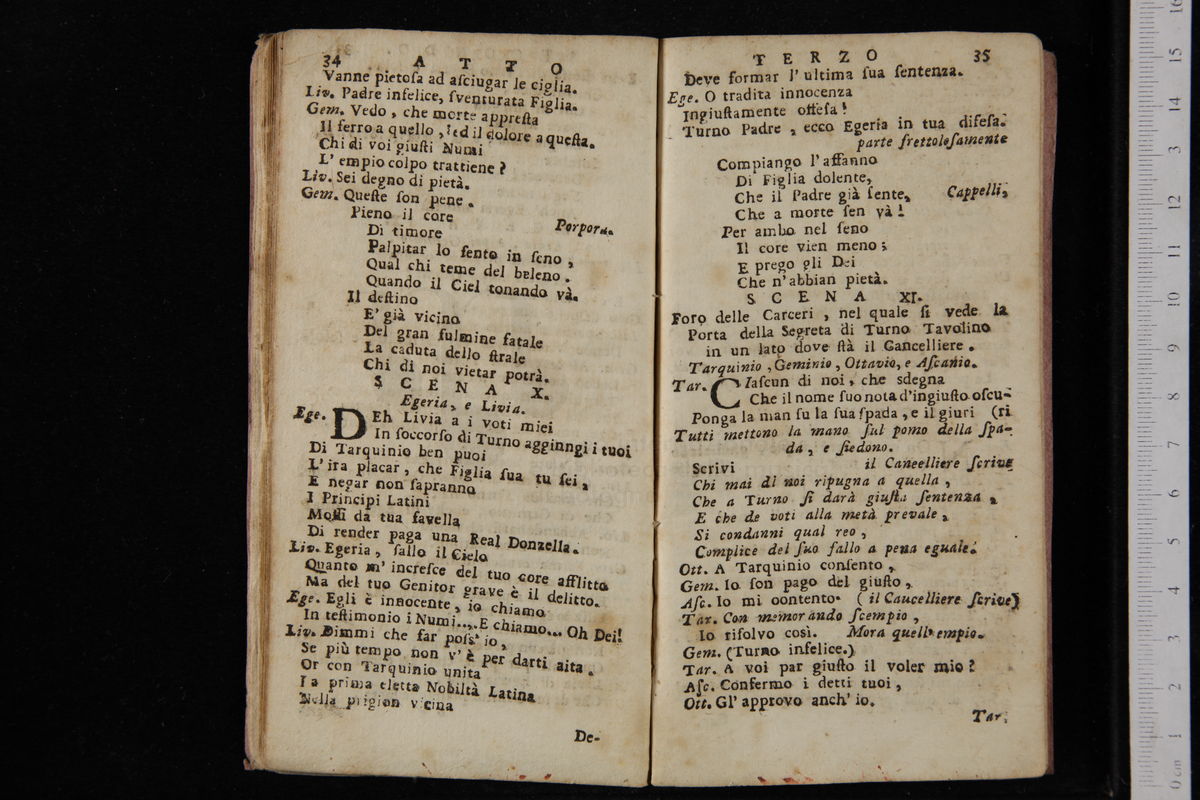 34 A T T O
Vanne pietoſa ad aſciugar le ciglia.
Liv. Padre infelice, ſventurata Figlia.
Gem. Vedo, che morte appreſta
Il ferro a quello, ed il dolore a queſta.
Chi di voi giuſti Numi
L' empio colpo trattiene?
Liv. Sei degno di pietà.
Gem. Queſte ſon pene.
Pieno il core
Di timore Porpora.
Palpitar lo ſento in ſeno,
Qual chi teme del beleno.
Quando il Ciel tonando và.
Il deſtino
E' già vicino
Del gran fulmine fatale
La caduta dello ſtrale
Chi di noi vietar potrà.
S C E N A X.
Egeria, e Livia.
Ege. DEh Livia a i voti miei
In ſoccorſo di Turno agginngi i tuoi
Di Tarquinio ben puoi
L' ira placar, che Figlia ſua tu ſei,
E negar non ſapranno
I Principi Latini
Moſſi da tua favella
Di render paga una Real Donzella.
Liv. Egeria, ſallo il Cielo
Quanto m' increſce del tuo core afflitto
Ma del tuo Genitor grave è il delitto.
Ege. Egli è innocente, io chiamo
In teſtimonio i Numi.... E chiamo... Oh Dei!
Liv. Dimmi che far poſs' io,
Se più tempo non v' è per darti aita.
Or con Tarquinio unita
La prima eletta Nobiltà Latina
Nella prigion vicina
De-
T E R Z O 35
Deve formar l' ultima ſua ſentenza.
Ege. O tradita innocenza
Ingiuſtamente offeſa!
Turno Padre, ecco Egeria in tua difeſa.
parte frettoloſamente
Compiango l' affanno
Di Figlia dolente,
Che il Padre già ſente, Cappelli,
Che a morte ſen và!
Per ambo nel ſeno
Il core vien meno;
E prego gli Dei
Che n' abbian pietà.
S C E N A XI.
Foro delle Carceri, nel quale ſi vede la
Porta della Segreta di Turno Tavolino
in un lato dove ſtà il Cancelliere.
Tarquinio, Geminio, Ottavio, e Aſcanio.
Tar. CIaſcun di noi, che sdegna
Che il nome ſuo nota d'ingiuſto oſcu-
Ponga la man ſu la ſua ſpada, e il giuri (ri
Tutti mettono la mano ſul pomo della ſpa-
da, e ſiedono.
Scrivi il Caneelliere ſcrive
Chi mai di noi ripugna a quella,
Che a Turno ſi darà giuſta ſentenza,
E che de voti alla metà prevale,
Si condanni qual reo,
Complice del ſuo fallo a pena eguale.
Ott. A Tarquinio conſento,
Gem. Io ſon pago del giuſto,
Aſc. Io mi oontento. (il Caucelliere ſcrive)
Tar. Con memorando ſcempio,
Io riſolvo così. Mora quell' empio.
Gem. (Turno infelice.)
Tar. A voi par giuſto il voler mio?
Aſc. Confermo i detti tuoi,
Ott. Gl' approvo anch' io.
Tar.
0 cm 1 2 3 4 5 6 7 8 9 10 11 12 13 14 15 16